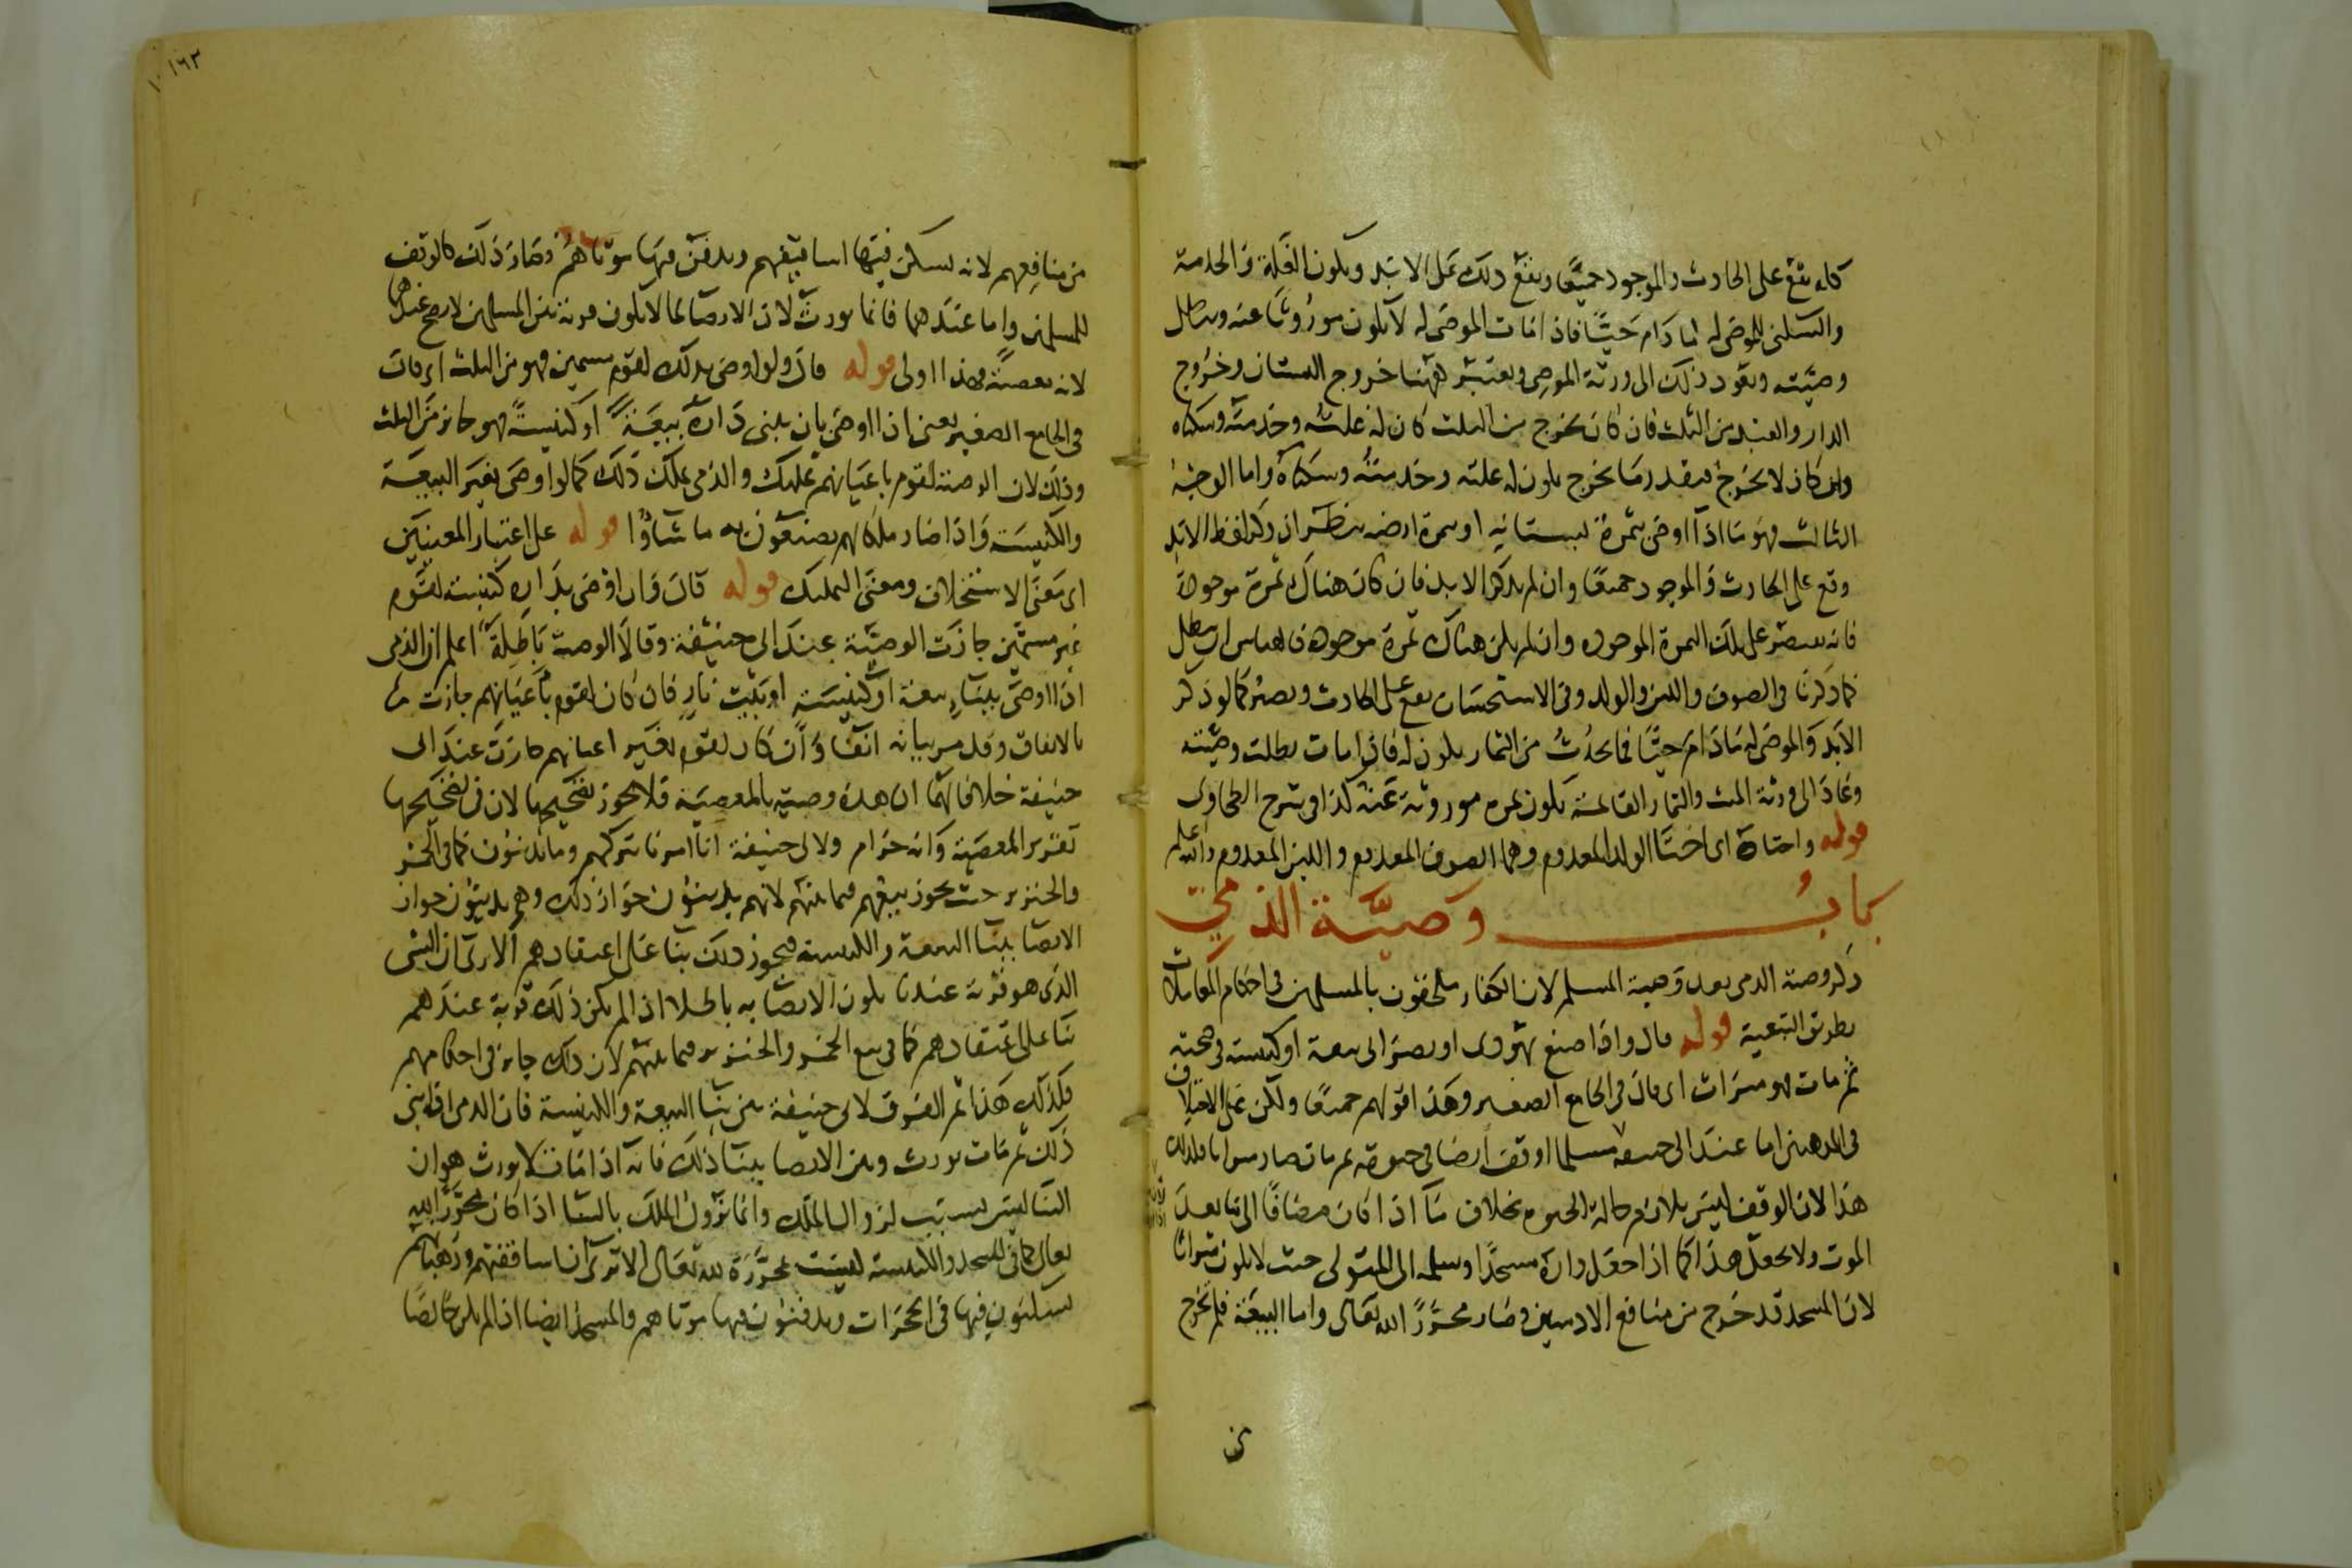 كان يقع على الحادث والموجود جميعًا ويقع ذلك على الابد ويكون الغلة والخدمة
والسكنى للموصى له ما دام حيًّا فاذا مات الموصى له لا يكون موروثا عنه وتبطل
وصيته ويعود ذلك الى ورثة الموصى ويعتبر ههنا خروج البستان وخروج
الدار والعبد من الثلث فان كان يخرج من الثلث كان له غلته وخدمته وسكناه
وان كان لا يخرج فبقدر ما يخرج يكون له غلته وخدمته وسكناه واما الوجه
الثالث فهو ما اذا اوصى بثمرة بستانه او ثمرة ارضه ينظر ان ذكر لفظ الابد
وقع على الحادث والموجود جميعًا وان لم يذكر الابد فان كان هناك ثمرة موجودة
فانه يقتصر على تلك الثمرة الموجوده وان لم يكن هناك ثمرة موجوده فالقياس ان يبطل
كما ذكرنا فى الصوف واللبن والولد وفى الاستحسان يقع على الحادث ويصير كما لو ذكر
الابد والموصى له ما دام حيًّا فما يحدث من الثمار يكون له فاذا مات بطلت وصيته
وعاد الى ورثة الميت والثمار القائمة يكون لهم موروثة عنه كذا فى شرح الطحاوى
قوله واختاه اى اختا الولد المعدوم وهما الصوف المعدوم واللبن المعدوم والله اعلم
باب وصية الذمى
ذكر وصية الذمى بعد وصية المسلم لان الكفار ملحقون بالمسلمين فى احكام المعاملات
بطريق التبعية قوله قال واذا صنع يهودى او نصرانى بيعة او كنيسة فى صحته
ثم مات فهو ميراث اى قال فى الجامع الصغير وهذا قولهم جميعًا ولكن على الاختلاف
فى المذهبين اما عند ابى حنيفة مسلما اوقف ارضا فى حيوته ثم مات صار ميراثا فكذلك
هذا لان الوقف ليس بلازم حالة الحيوة بخلاف ما اذا كان مضافًا الى ما بعد
الموت ولا يجعل هذا كما اذا جعل داره مسجدًا وسلمه الى المتولى حيث لا يكون ميراثا
لان المسجد قد خرج من منافع الادميين وصار محررًا لله تعالى واما البيعة فلم تخرج
من
١٦٣
من منافعهم لانه يسكن فيها اساقفهم ويدفن فيها موتاهم وصار ذلك كالوقف
للمسلمين واما عندهما فانما يورث لان الايصا بما لا يكون قربة بين المسلمين لا يصح عندهما
لانه معصية فهذا اولى قوله قال ولو اوصى بذلك لقوم مسمين فهو من الثلث اى قال
فى الجامع الصغير يعنى اذا اوصى بان يبنى داره بيعة او كنيسةً فهو جائز من الثلث
وذلك لان الوصية لقوم باعيانهم تمليك والذمى يملك ذلك كما لو اوصى بغير البيعة
والكنيسة واذا صار ملكا لهم يصنعون به ما شاؤا قوله على اعتبار المعنيين
اى معنى الاستخلاف ومعنى التمليك قوله قال وان اوصى بداره كنيسة لقوم
غير مسمين جازت الوصية عند ابى حنيفة وقالا الوصية باطلة اعلم ان الذمى
اذا اوصى ببناء بيعة او كنيسة او بيت نار فان كان لقوم باعيانهم جازت
بالاتفاق وقد مر بيانه انفا وان كان لقوم بغير اعيانهم جازت عند ابى
حنيفة خلافا لهما ان هذه وصية بالمعصية فلا يجوز تصحيحها لان فى تصحيحها
تقرير المعصية وانه حرام ولابى حنيفة انا امرنا بتركهم وما يدينون كما فى الخمر
والخنزير حيث يجوز بيعهم فيما بينهم لانهم يدينون جواز ذلك وهم يدينون جواز
الايصا ببنا البيعة والكنيسة فيجوز ذلك بنا على اعتقادهم الا ترى ان الشى
الذى هو قربة عندنا يكون الايصا به باطلا اذا لم يكن ذلك قربة عندهم
بنا على اعتقادهم كما فى بيع الخمر والخنزير فيما بينهم لان ذلك جائز فى احكامهم
فكذلك هذا ثم الفرق لابى حنيفة بين بنا البيعة والكنيسة فان الذمى اذا بنى
ذلك ثم مات يورث وبين الايصا ببنا ذلك فانه اذا مات لا يورث هو ان
البنا ليس بسبب لزوال الملك وانما يزول الملك بالبنا اذا كان محررا لله
تعالى كما فى المسجد والكنيسة ليست محررة لله تعالى الا ترى ان اساقفتهم ورهبانهم
يسكنون فيها فى الحجرات ويدفنون فيها موتاهم والمسجد ايضا اذا لم يكن خالصًا